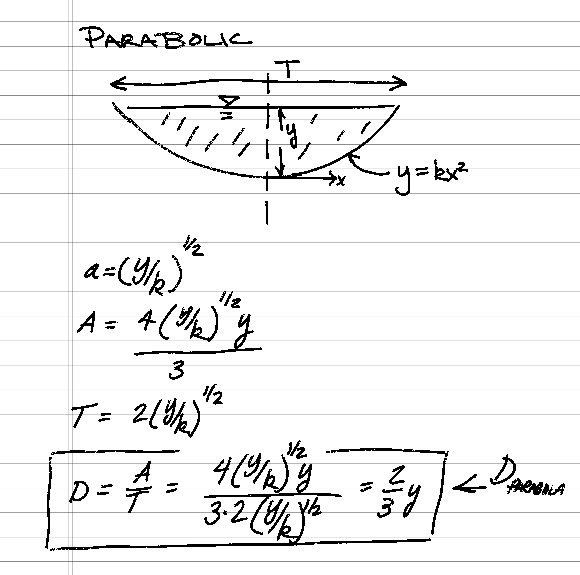 PARABOLIC
T
y
x
y=kx²
a=(y/k)^1/2
A = 4(y/k)^1/2 y / 3
T = 2(y/k)^1/2
D = A/T = 4(y/k)^1/2 y / 3·2(y/k)^1/2 = 2/3 y ← D PARABOLA